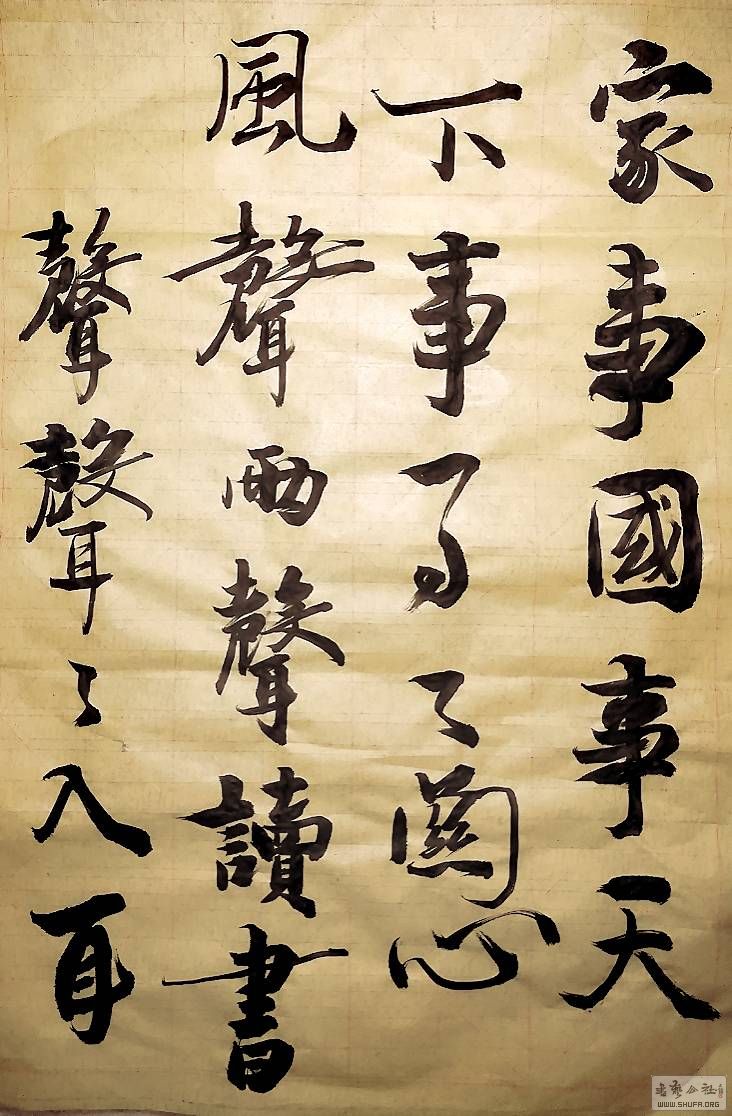 家事國事天
下事事〻關心
風聲雨聲讀書
聲聲〻入耳
書藝公社
WWW.SHUFA.ORG